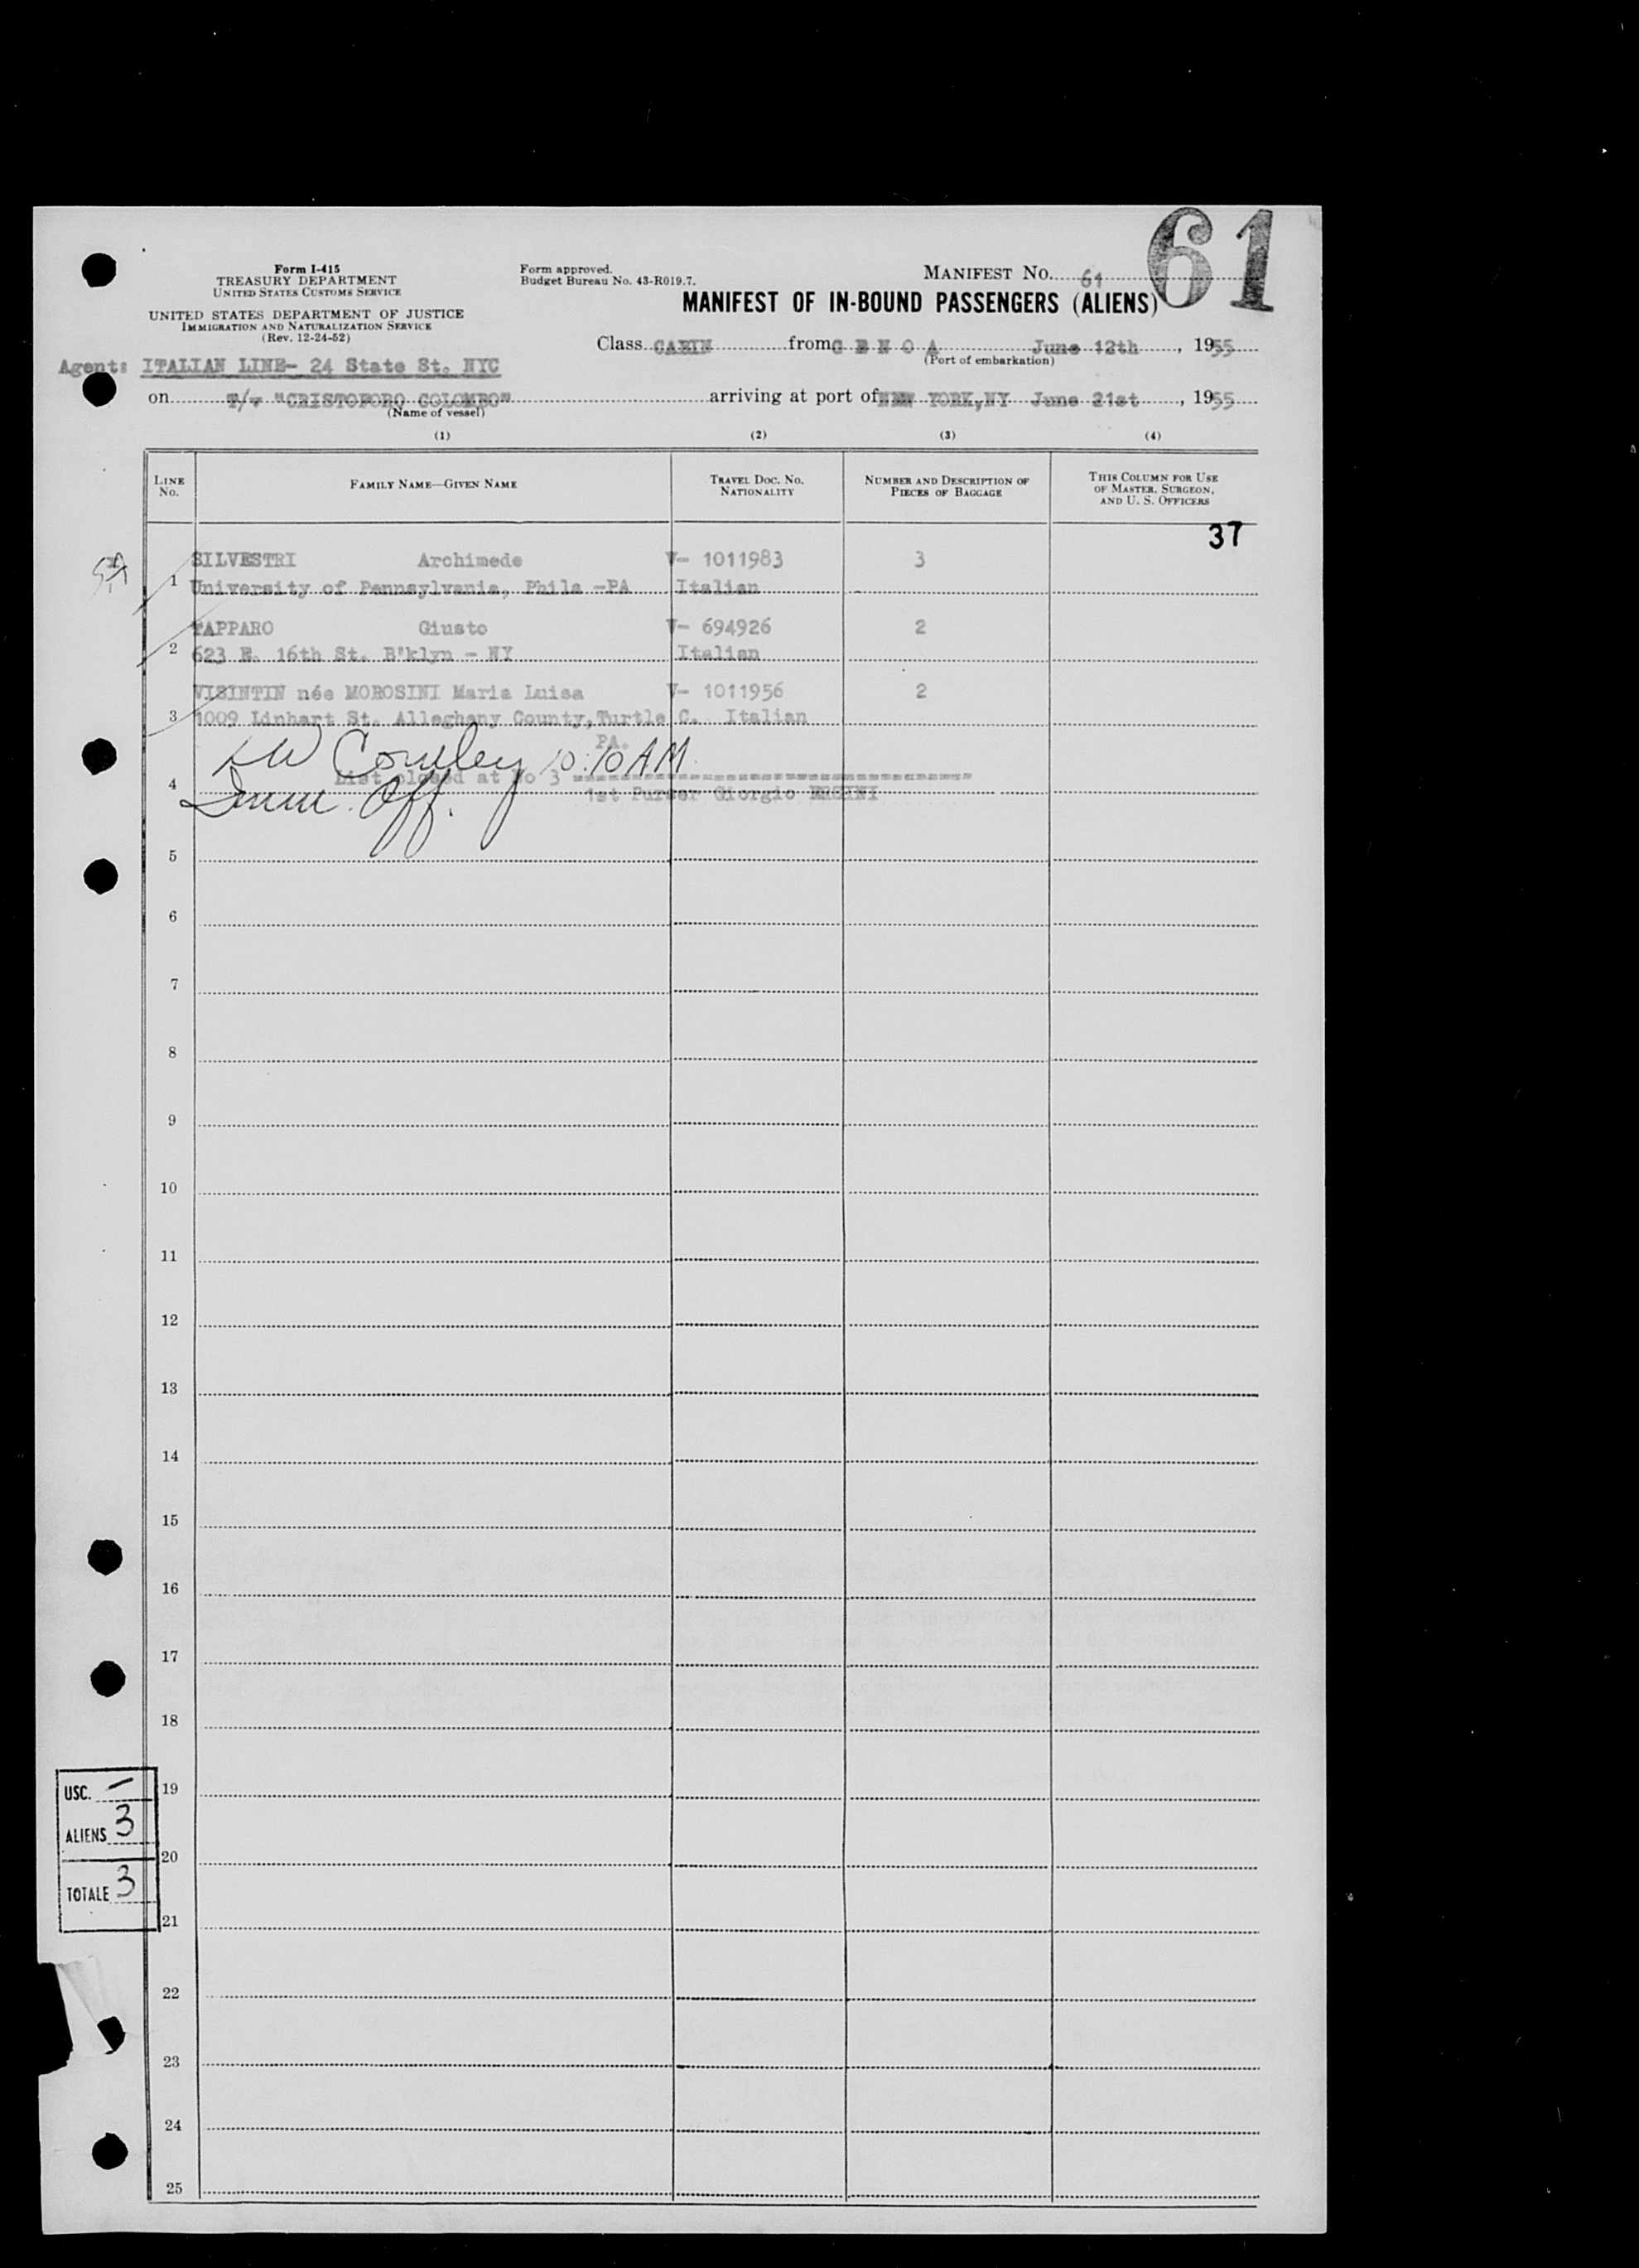 61
Form I-415
TREASURY DEPARTMENT
UNITED STATES CUSTOMS SERVICE
UNITED STATES DEPARTMENT OF JUSTICE
IMMIGRATION AND NATURALIZATION SERVICE
(Rev. 12-24-52)
Form approved.
Budget Bureau No. 43-R019.7.
MANIFEST NO. 61
MANIFEST OF IN-BOUND PASSENGERS (ALIENS)
Class CABIN from G E N O A June 12th, 1955
(Port of embarkation)
Agent: ITALIAN LINE- 24 State St. NYC
on "CRISTOFORO COLOMBO" arriving at port of NEW YORK, NY June 21st, 1955
(Name of vessel)
(1) (2) (3) (4)
LINE NO. FAMILY NAME—GIVEN NAME TRAVEL DOC. NO. NATIONALITY NUMBER AND DESCRIPTION OF PIECES OF BAGGAGE THIS COLUMN FOR USE OF MASTER, SURGEON, AND U. S. OFFICERS
37
SILVESTRI Archimede V- 1011983 3
1 University of Pennsylvania, Phila -PA Italian
TAPPARO Giusto V- 694926 2
2 623 E. 16th St. B'klyn - NY Italian
VISINTIN née MOROSINI Maria Luisa V- 1011956 2
3 1009 Linhart St. Alleghany County, Turtle C. Italian
PA.
10:10 AM
List closed at No 3
4 Imm. Off. 1st Purser Giorgio
5
6
7
8
9
10
11
12
13
14
15
16
17
18
19
20
21
22
23
24
25
USC. –
ALIENS 3
TOTALE 3